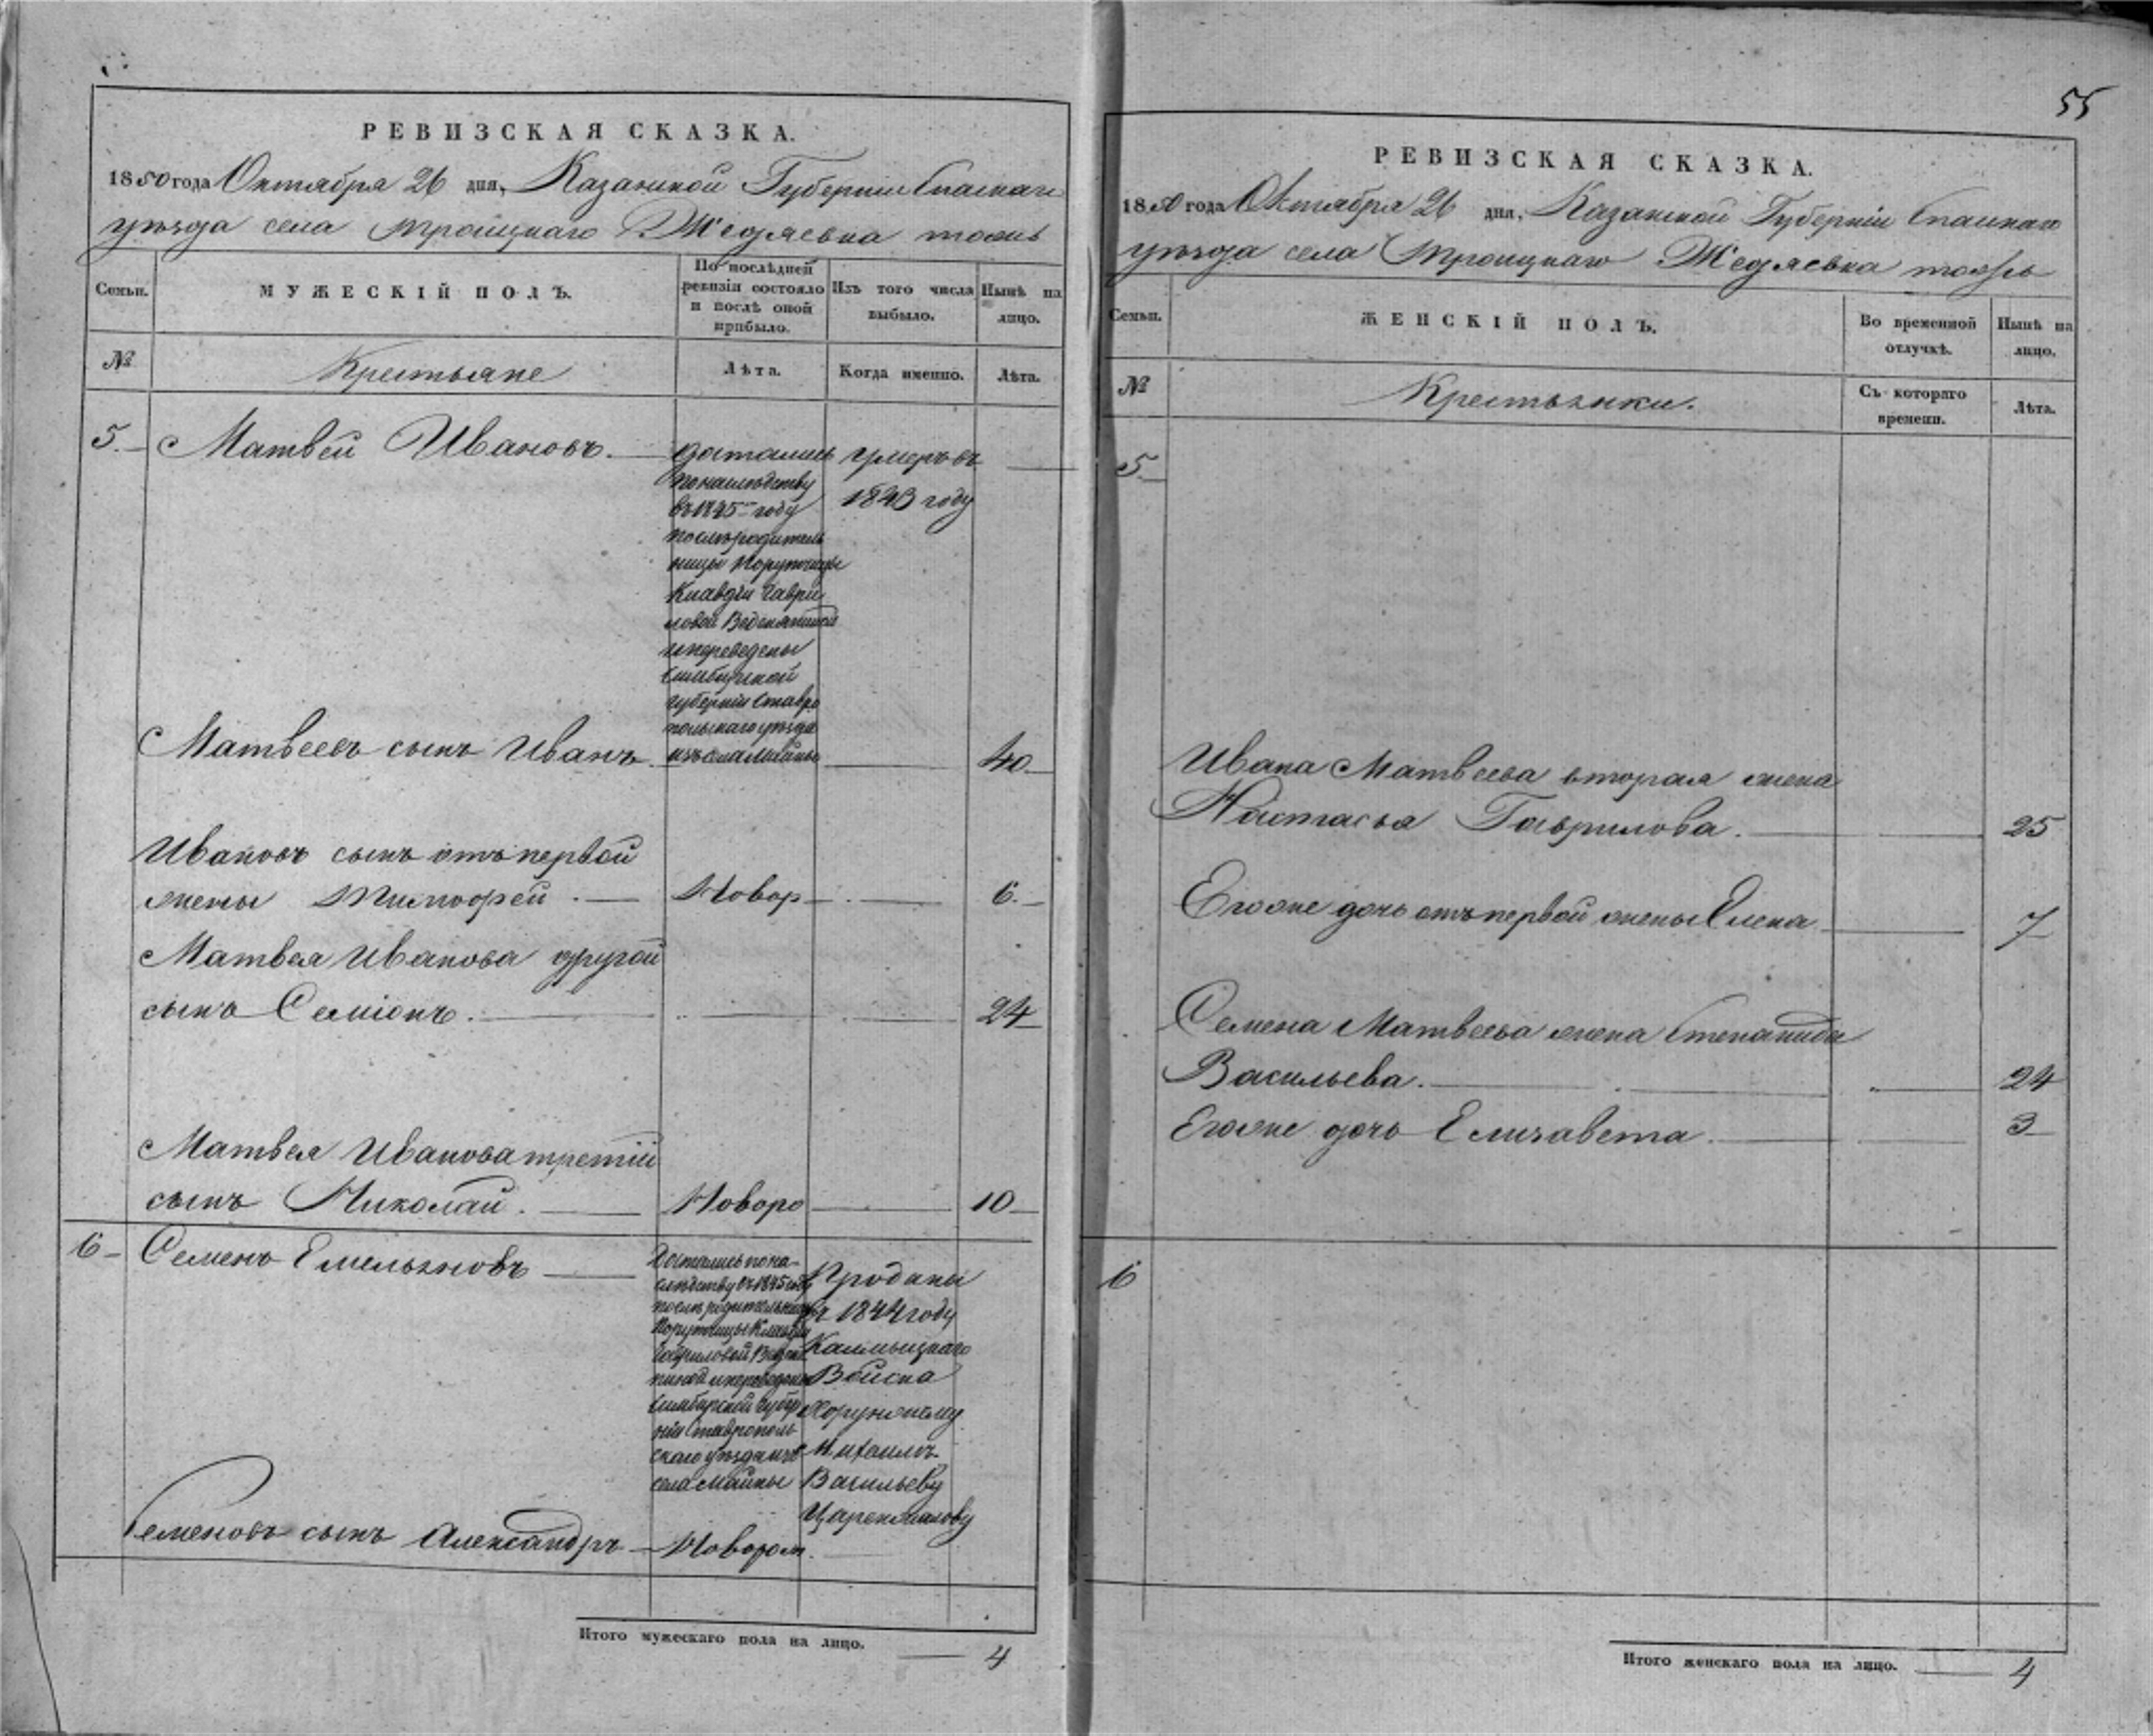 55
РЕВИЗСКАЯ СКАЗКА.
1850 года Октября 26 дня, Казанской Губерніи Спаскаго
уѣзда села Троицкаго Жедяевка тожъ
Семьи.
МУЖЕСКІЙ ПОЛЪ.
По послѣдней ревизіи состояло и послѣ оной прибыло.
Изъ того числа выбыло.
Нынѣ на лицо.
№
Крестьяне
Лѣта.
Когда именно.
Лѣта.
5. Матвей Ивановъ.
достались
понаследству
въ 1845 году
послѣ родитель
ницы Порутчицы
Клавдіи Гаври
ловой
и переведены
Симбирской
губерніи Ставро
польскаго уѣзда
изъ села Майны
умеръ въ
1843 году
Матвеевъ сынъ Иванъ 40
Ивановъ сынъ отъ первой
жены Тимофей. Новор 6.
Матвея Иванова другой
сынъ Семіонъ. 24
Матвея Иванова третій
сынъ Николай. Новоро 10
6 Семенъ Емельяновъ
Достались по на
следству въ 1845 году
послѣ родительницы
Порутчицы Клавдіи
Гавриловой
и переведены
Симбирской Губер
ніи Ставрополь
скаго уѣзда изъ
села Майны
Проданы
въ 1844 году
Калмыцкаго
Войска
Хорунжему
Михаилъ
Васильеву
Семеновъ сынъ Александръ Новорож.
Итого мужескаго пола на лицо. 4
РЕВИЗСКАЯ СКАЗКА.
1850 года Октября 26 дня, Казанской Губерніи Спаскаго
уѣзда села Троицкаго Жедяевка тожъ
Семьи.
ЖЕНСКІЙ ПОЛЪ.
Во временной отлучкѣ.
Нынѣ на лицо.
№
Крестьянки.
Съ котораго времени.
Лѣта.
5.
Ивана Матвеева вторая жена
Настасья Гаврилова. 25
Егоже дочь отъ первой жены Елена 7
Семена Матвеева жена Степанида
Васильева. 24
Егоже дочь Елизавета. 3
6
Итого женскаго пола на лицо. 4